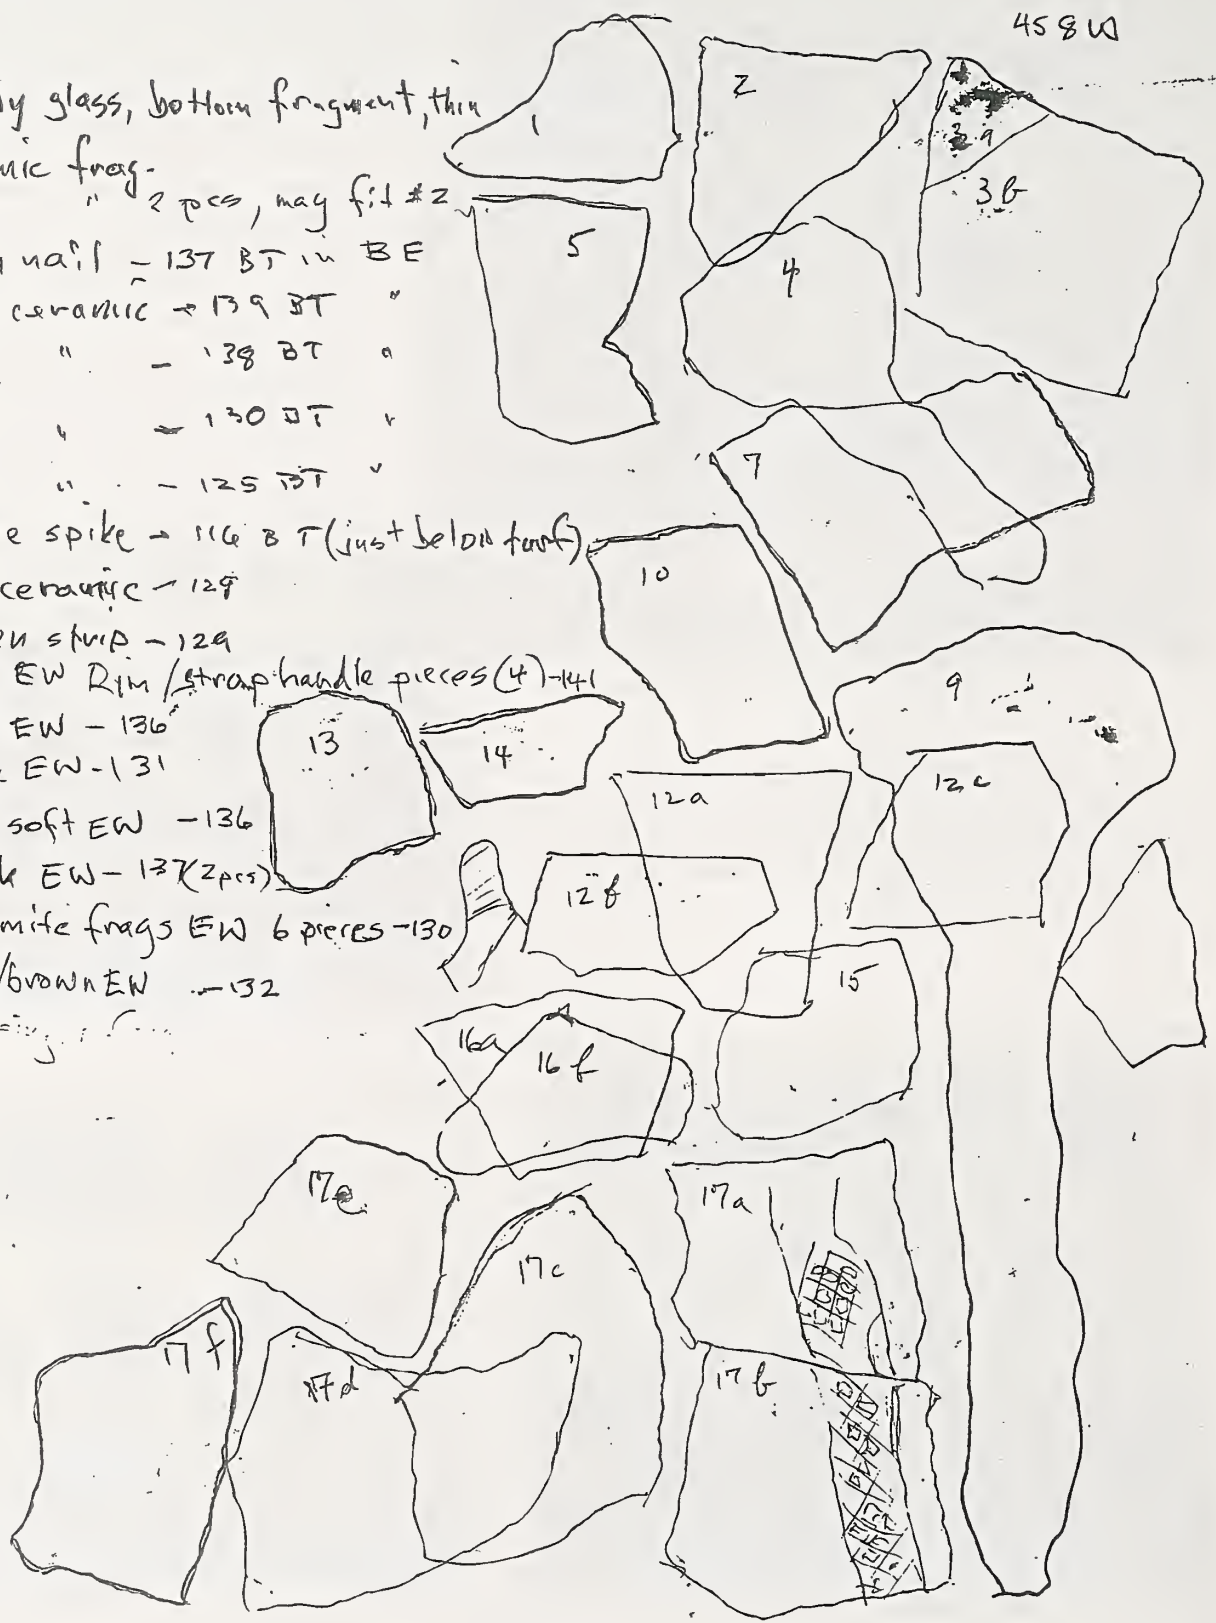 45 8 W
y glass, bottom fragment, thin
mic frag.
" 2 pcs, may fit #2
nail - 137 BT in BE
ceramic - 139 BT "
" - 138 BT "
" - 130 BT "
" - 125 BT "
e spike - 116 BT (just below turf)
ceramic - 129
en strip - 129
EW Rim/strap handle pieces (4) - 141
EW - 136
EW - 131
soft EW - 136
k EW - 137 (2pcs)
mite frags EW 6 pieces - 130
/brown EW - 132
1
2
3a
3b
5
4
7
10
9
13
14
12a
12c
12b
15
16a
16b
17e
17a
17c
17f
17d
17b